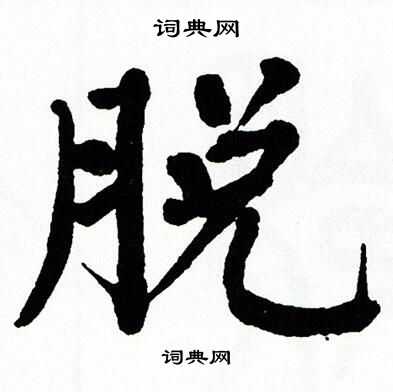 词典网
脱
词典网